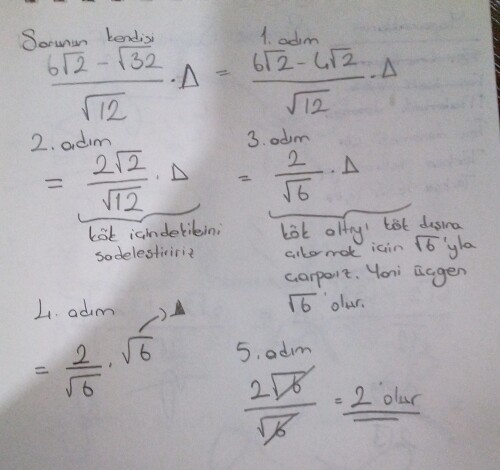 Sorunun kendisi
6√2 - √32 / √12 · Δ = 6√2 - 4√2 / √12 · Δ
1. adım
2. adım
= 2√2 / √12 · Δ
kök içindekileini
sadeleştiririz
3. adım
= 2 / √6 · Δ
kök altıyı kök dışına
çıkarmak için √6'yla
çarparız. Yani üçgen
√6 olur.
4. adım
= 2 / √6 · √6 → Δ
5. adım
2√6 / √6 = 2 olur